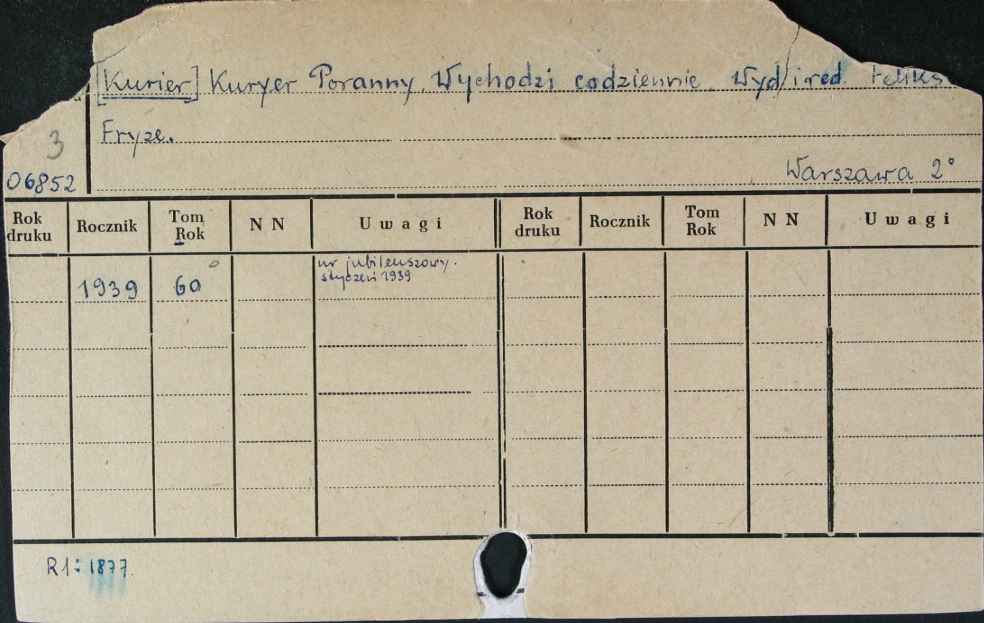 [Kurier] Kuryer Poranny. Wychodzi codziennie. Wyd. i red. Feliks
Fryze.
3
06852
Warszawa 2°
Rok druku Rocznik Tom Rok N N Uwagi Rok druku Rocznik Tom Rok N N Uwagi
1939 60 nr jubileuszowy.
styczeń 1939
R1: 1877.